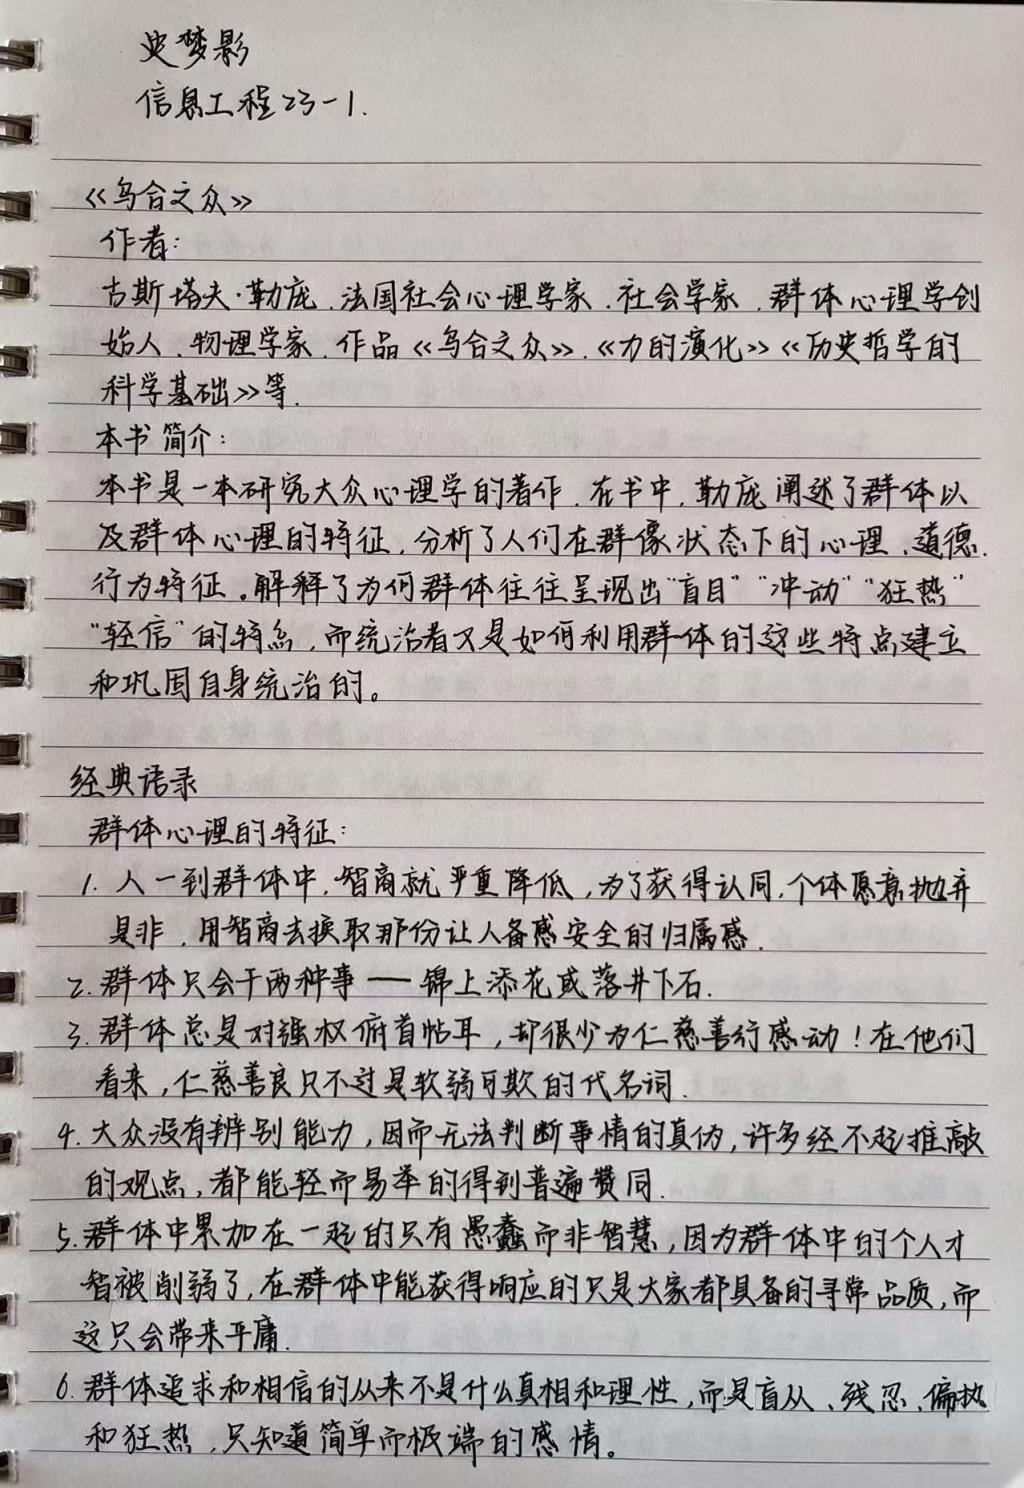 史梦影
信息工程23-1.
《乌合之众》
作者:
古斯塔夫·勒庞、法国社会心理学家、社会学家、群体心理学创
始人、物理学家、作品《乌合之众》、《力的演化》《历史哲学的
科学基础》等.
本书简介:
本书是一本研究大众心理学的著作、在书中,勒庞阐述了群体以
及群体心理的特征,分析了人们在群像状态下的心理、道德、
行为特征。解释了为何群体往往呈现出“盲目”“冲动”“狂热”
“轻信”的特点,而统治者又是如何利用群体的这些特点建立
和巩固自身统治的。
经典语录
群体心理的特征:
1. 人一到群体中,智商就严重降低,为了获得认同,个体愿意抛弃
是非,用智商去换取那份让人备感安全的归属感.
2. 群体只会干两种事——锦上添花或落井下石.
3. 群体总是对强权俯首帖耳,却很少为仁慈善行感动!在他们
看来,仁慈善良只不过是软弱可欺的代名词.
4. 大众没有辨别能力,因而无法判断事情的真伪,许多经不起推敲
的观点,都能轻而易举的得到普遍赞同.
5. 群体中累加在一起的只有愚蠢而非智慧,因为群体中的个人才
智被削弱了,在群体中能获得响应的只是大家都具备的寻常品质,而
这只会带来平庸.
6. 群体追求和相信的从来不是什么真相和理性,而是盲从、残忍、偏执
和狂热,只知道简单而极端的感情。